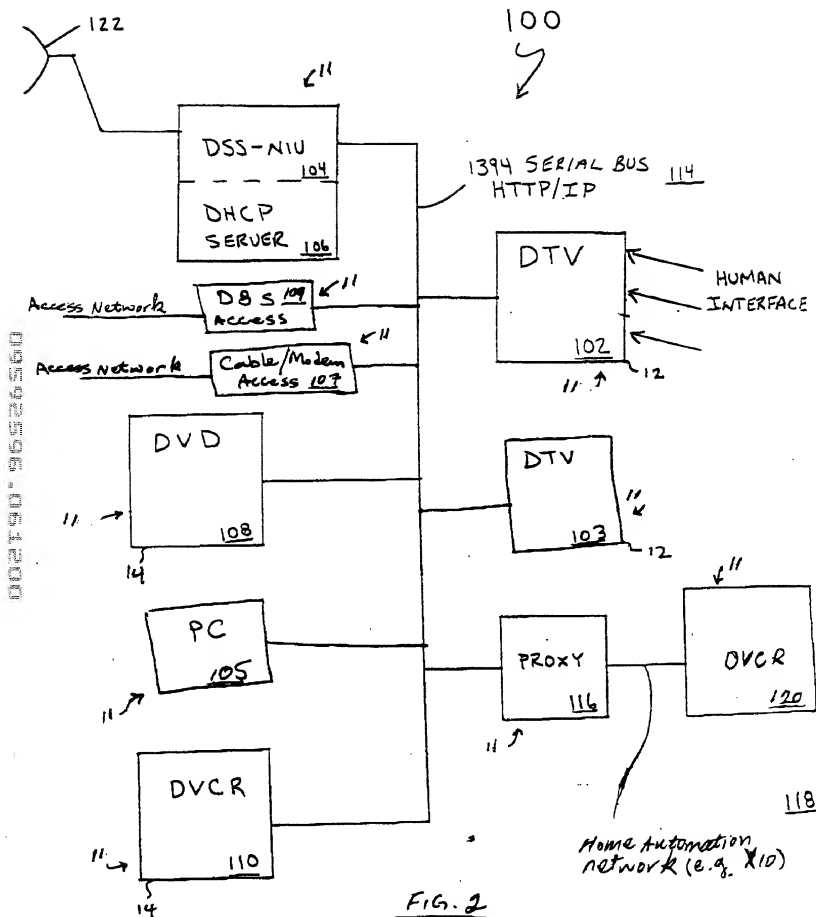 122
100
11
DSS-NIU
104
DHCP
SERVER
106
1394 SERIAL BUS
HTTP/IP
114
Access Network
DBS 109
Access
11
Access Network
Cable/Modem
Access 107
11
DTV
102
12
11
HUMAN
INTERFACE
DVD
108
11
14
DTV
103
11
12
PC
105
11
PROXY
116
11
11
OVCR
120
DVCR
110
11
14
118
Home Automation
network (e.g. X10)
FIG. 2
09592596.061200